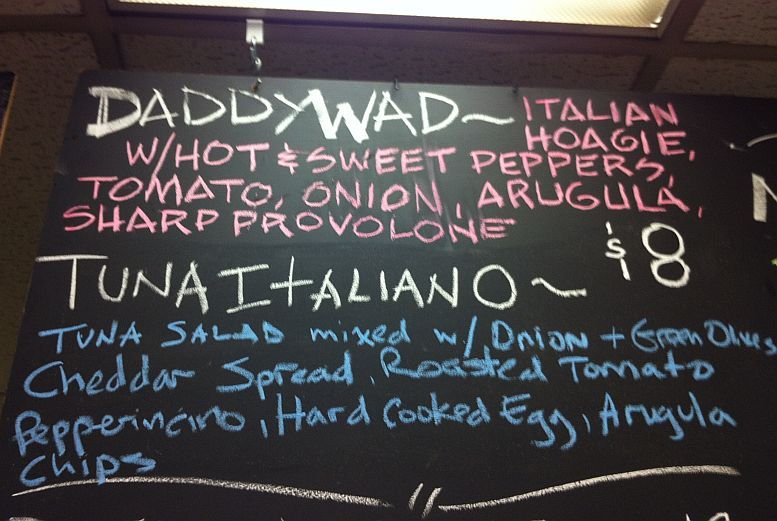 DADDYWAD ~ ITALIAN
HOAGIE,
W/HOT & SWEET PEPPERS,
TOMATO, ONION, ARUGULA,
SHARP PROVOLONE
$8
TUNA ITALIANO ~
TUNA SALAD mixed w/ ONION + Green Olives
Cheddar Spread, Roasted Tomato
Pepperincino, Hard Cooked Egg, Arugula
Chips